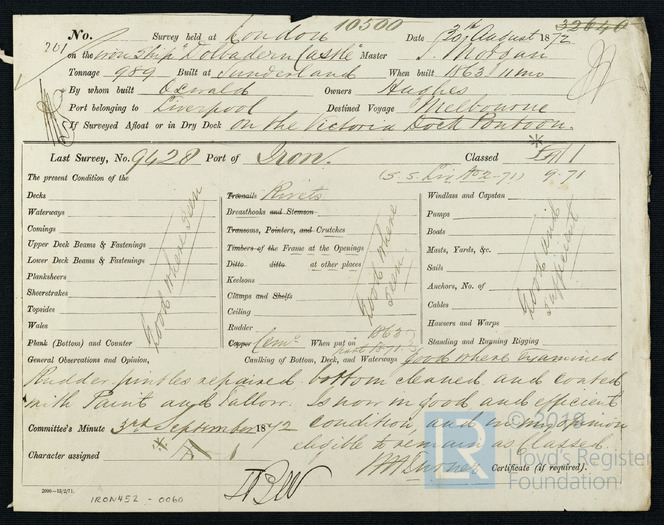 10560 32640
No. 201 Survey held at London Date 30th August 1872
on the Iron Ship "Dolbadern Castle" Master J. Morgan
Tonnage 989 Built at Sunderland When built 1863 11mo
By whom built Oswald Owners Hughes
Port belonging to Liverpool Destined Voyage Melbourne
If Surveyed Afloat or in Dry Dock On the Victoria Dock Pontoon.
Last Survey, No. 9428 Port of Iron. Classed A 1
The present Condition of the (S.S. Liv No 2-71) 9.71
Decks Treenails Rivets Windlass and Capstan
Waterways Breasthooks and Stemson Pumps
Comings Transoms, Pointers, and Crutches Boats
Upper Deck Beams & Fastenings Timbers of the Frame at the Openings Masts, Yards, &c.
Lower Deck Beams & Fastenings Ditto ditto at other places Sails
Planksheers Keelsons Anchors, No. of
Sheerstrakes Clamps and Shelfs Cables
Topsides Ceiling Hawsers and Warps
Wales Rudder Standing and Running Rigging
Good where seen
Good where seen
Good and sufficient
Plank (Bottom) and Counter Copper Cemt When put on 1863
General Observations and Opinion, Caulking of Bottom, Deck, and Waterways Good where examined
Rudder pintles repaired bottom cleaned and coated
with Paint and Tallow. Is now in good and efficient
Committee's Minute 3rd September 1872 condition, and in my opinion
eligible to remain as Classed.
Character assigned A 1
Certificate (if required).
2000-13/2/71.
IRON452 - 0060
© 2019
LR
Lloyd's Register
Foundation